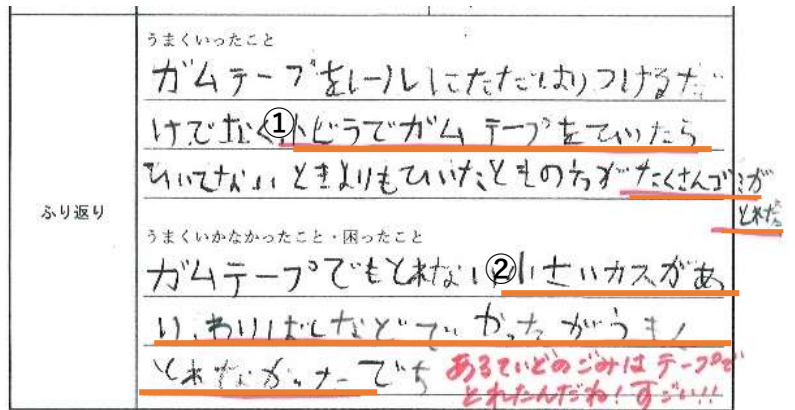 ふり返り
うまくいったこと
ガムテープをレールにただはりつけるだ
けでなく①小どうでガムテープをてらいたら
ひいてないときよりもひいたときの方がたくさんゴミが
とれた
うまくいかなかったこと・困ったこと
ガムテープでもとれない②小さいカスがあ
り、わりばしなどで
とれなかったです
あるていどのごみはテープで
とれたんだね！すごい!!